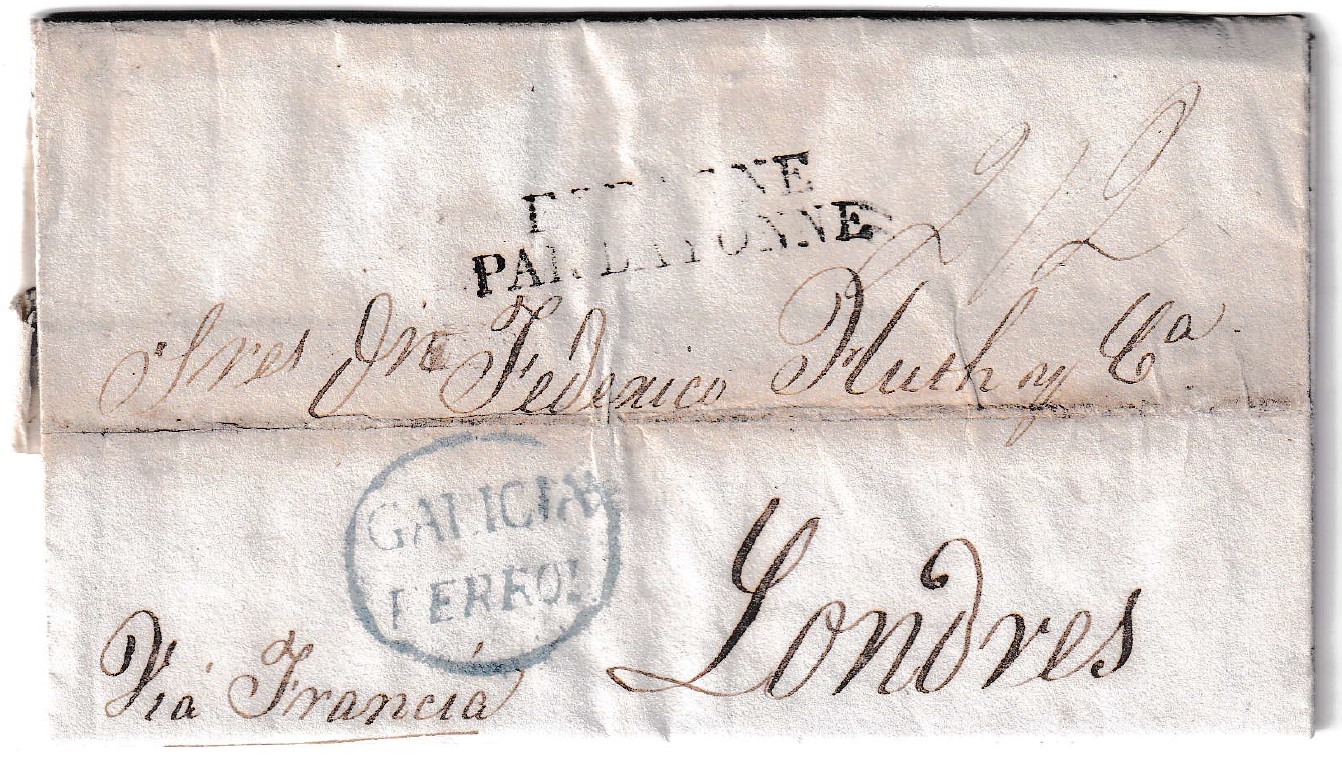 ESPAGNE
PAR BAYONNE
2/2
Sres Dn Féderico Huth y Ca.
GALICIA
FERROL
Londres
Viá Francia